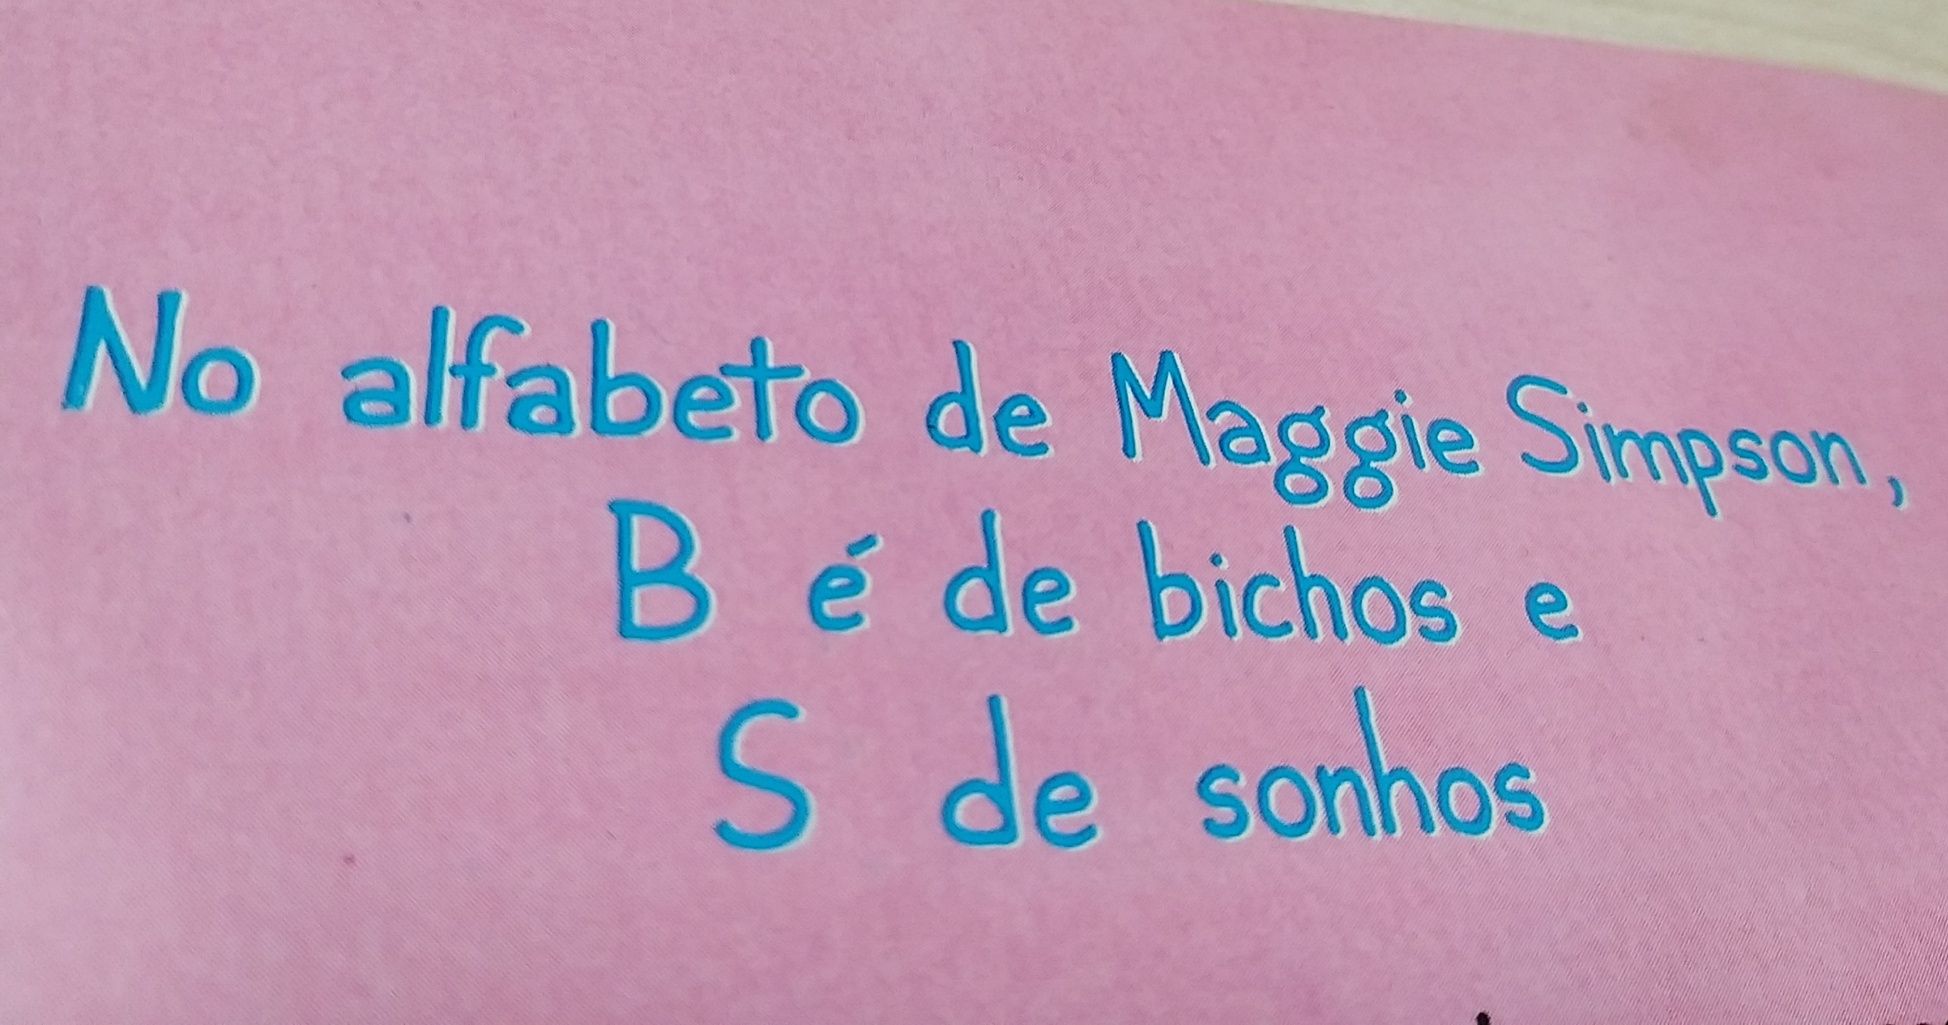 No alfabeto de Maggie Simpson,
B é de bichos e
S de sonhos